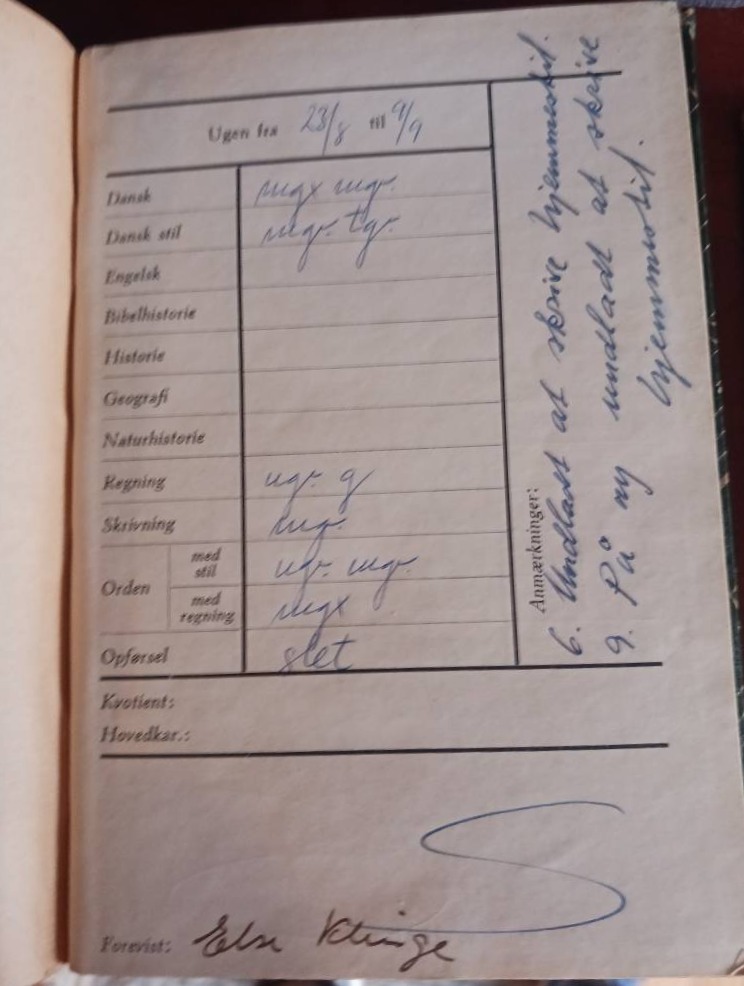 Ugen fra 23/8 til 9/9
Dansk mgx mg÷
Dansk stil mg÷ tg÷
Engelsk
Bibelhistorie
Historie
Geografi
Naturhistorie
Regning ug÷ g
Skrivning mg÷
Orden
med stil ug÷ mg÷
med regning mgx
Opførsel slet
Anmærkninger:
6. Undladt at skrive hjemmestil.
9. På ny undladt at skrive
hjemmestil.
Kvotient:
Hovedkar.:
S
Forevist: Else Klinge